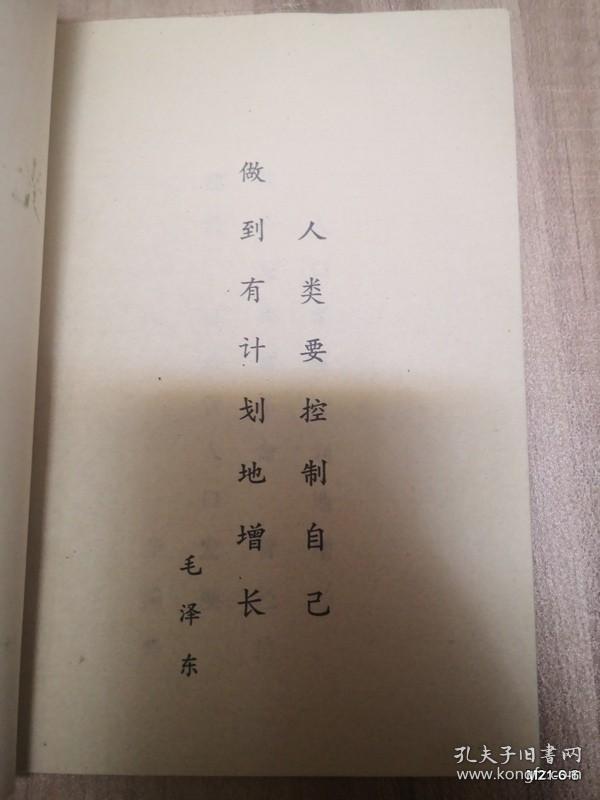 人类要控制自己
做到有计划地增长
毛泽东
孔夫子旧书网